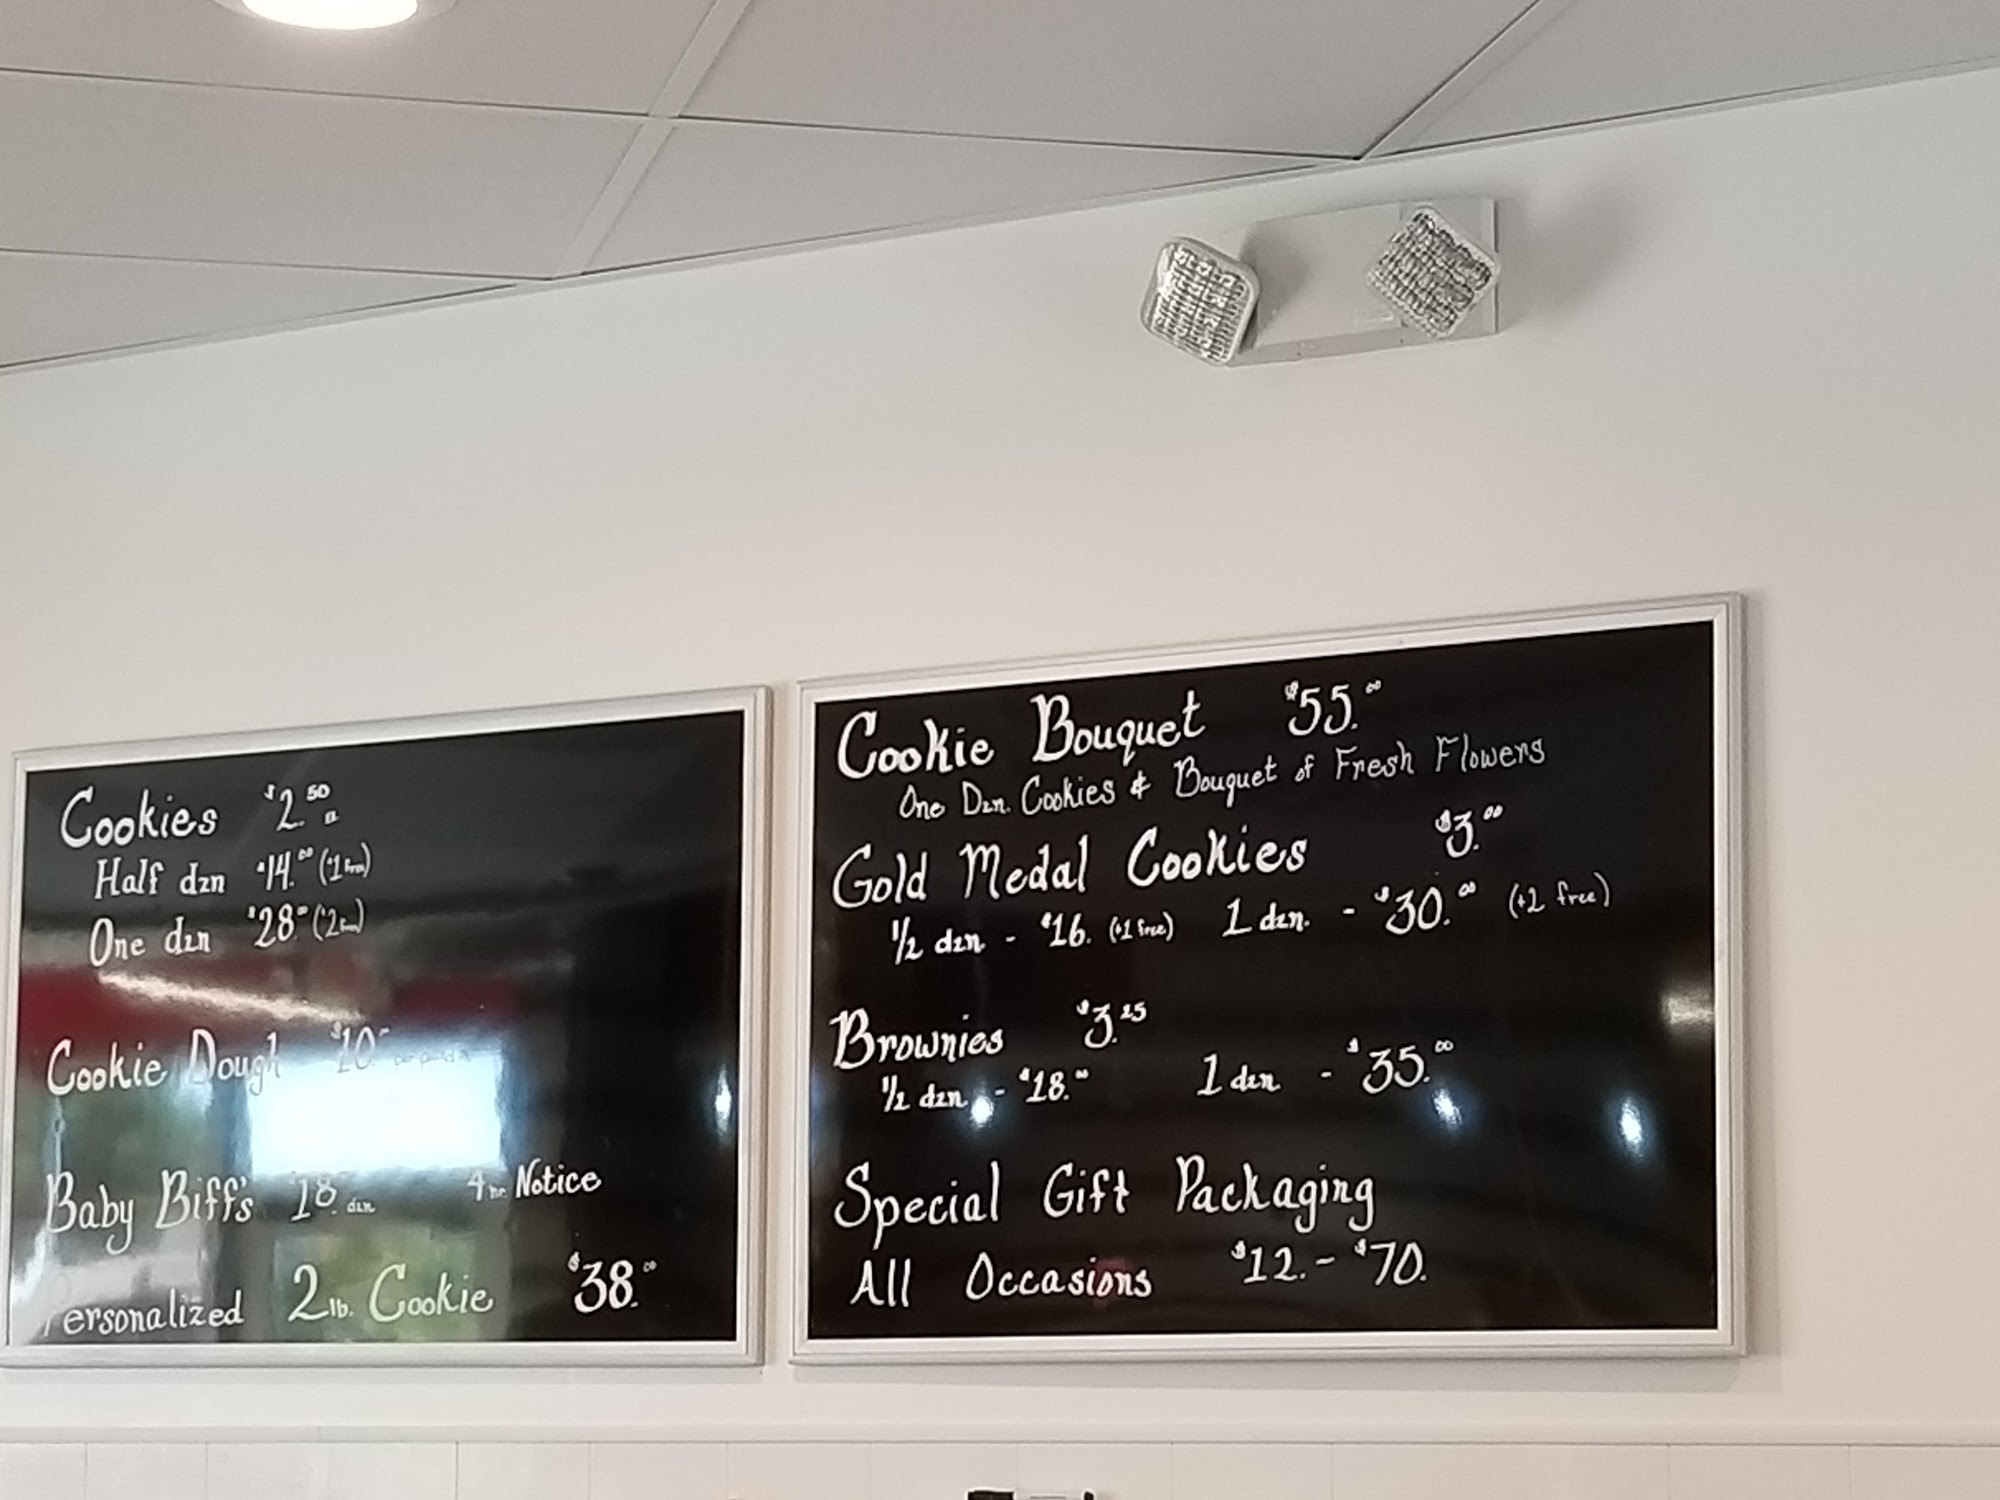 Cookies $2.50
Half dzn $14.00 (+1 free)
One dzn $28.00 (+2 free)
Cookie Dough $10.- per pound
Baby Biff's $18. dzn 4 hr. Notice
Personalized 2 lb. Cookie $38.00
Cookie Bouquet $55.00
One Dzn. Cookies & Bouquet of Fresh Flowers
Gold Medal Cookies $3.00
1/2 dzn. - $16. (+1 free) 1 dzn. - $30.00 (+2 free)
Brownies $3.25
1/2 dzn. - $18.00 1 dzn - $35.00
Special Gift Packaging
All Occasions $12. - $70.